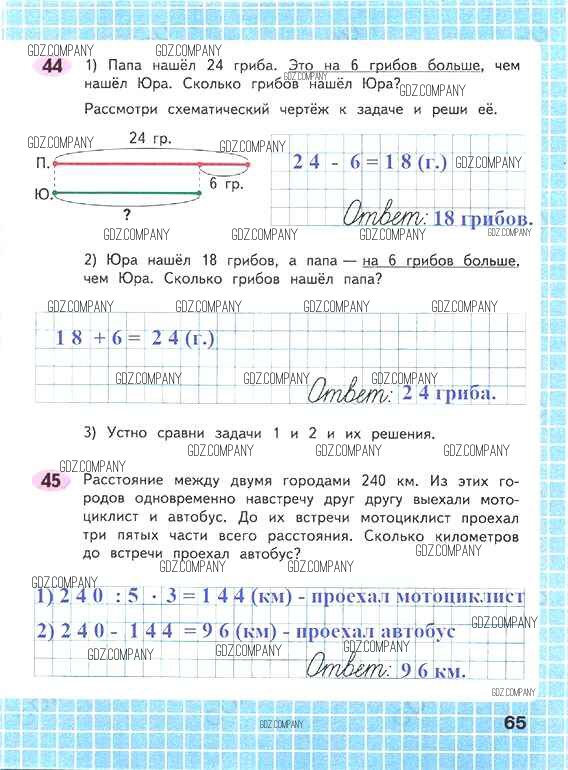 GDZ.COMPANY GDZ.COMPANY
44 1) Папа нашёл 24 гриба. Это на 6 грибов больше, чем
нашёл Юра. Сколько грибов нашёл Юра?
GDZ.COMPANY
GDZ.COMPANY
Рассмотри схематический чертёж к задаче и реши её.
GDZ.COMPANY
24 гр.
П.
6 гр.
Ю.
?
24 - 6 = 18 (г.) GDZ.COMPANY
Ответ: 18 грибов.
GDZ.COMPANY GDZ.COMPANY GDZ.COMPANY GDZ.COMPANY
2) Юра нашёл 18 грибов, а папа — на 6 грибов больше,
чем Юра. Сколько грибов нашёл папа?
GDZ.COMPANY GDZ.COMPANY GDZ.COMPANY GDZ.COMPANY
18 + 6 = 24 (г.)
GDZ.COMPANY GDZ.COMPANY GDZ.COMPANY
Ответ: 24 гриба.
3) Устно сравни задачи 1 и 2 и их решения.
GDZ.COMPANY GDZ.COMPANY GDZ.COMPANY GDZ.COMPANY
45 Расстояние между двумя городами 240 км. Из этих го-
родов одновременно навстречу друг другу выехали мото-
циклист и автобус. До их встречи мотоциклист проехал
три пятых части всего расстояния. Сколько километров
до встречи проехал автобус?
GDZ.COMPANY GDZ.COMPANY GDZ.COMPANY
GDZ.COMPANY GDZ.COMPANY
1) 240 : 5 · 3 = 144 (км) - проехал мотоциклист
2) 240 - 144 = 96 (км) - проехал автобус
GDZ.COMPANY
GDZ.COMPANY GDZ.COMPANY
Ответ: 96 км.
GDZ.COMPANY
GDZ.COMPANY
65